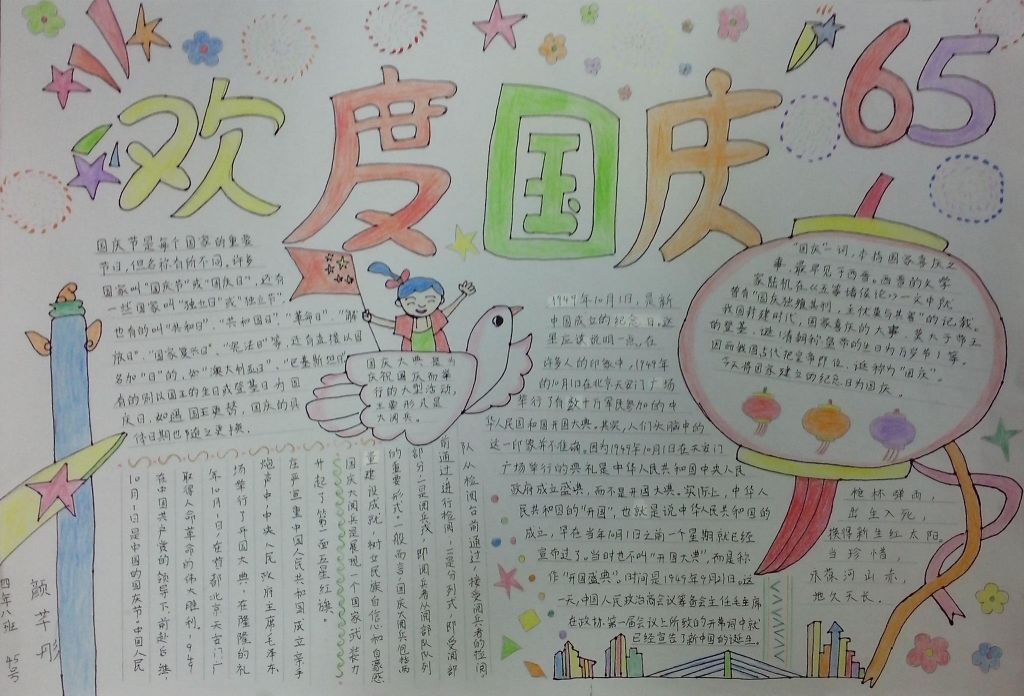 欢度国庆
65
国庆节是每个国家的重要
节日,但名称有所不同。许多
国家叫“国庆节”或“国庆日”,还有
一些国家叫“独立日”或“独立节”,
也有的叫“共和日”、“共和国日”、“革命日”、“解
放日”、“国家复兴日”、“宪法日”等,还有直接以国
名加“日”的,如“澳大利亚日”、“巴基斯坦日”
有的则以国王的生日或登基日为国
庆日,如遇国王更替,国庆的具
体日期也随之更换.
国庆大典,是为
庆祝国庆而举
行的大型活动,
主要形式是
大阅兵。
1949年10月1日,是新
中国成立的纪念日。这
里应该说明一点,在
许多人的印象中,1949年
的10月1日在北京天安门广场
举行了有数十万军民参加的中
华人民共和国开国大典。其实,人们头脑中的
这一印象并不准确。因为1949年10月1日在天安门
广场举行的典礼是中华人民共和国中央人民
政府成立盛典,而不是开国大典。实际上,中华人
民共和国的“开国”,也就是说中华人民共和国的
成立,早在当年10月1日之前一个星期就已经
宣布过了。当时也不叫“开国大典”,而是称
作“开国盛典”。时间是1949年9月21日。这
一天,中国人民政治商会议筹备会主任毛主席
在政协第一届会议上所致的开幕词中就
已经宣告了新中国的诞生。
“国庆”一词,本指国家喜庆之
事,最早见于西晋。西晋的文学
家陆机在《五等诸侯论》一文中就
曾有“国庆独飨其利,主忧莫与其害”的记载。
我国封建时代,国家喜庆的大事,莫大于帝王
的登基、诞(清朝称皇帝的生日为万岁节)等。
因而我国古代把皇帝即位、诞称为“国庆”。
今天将国家建立的纪念日为国庆。
枪林弹雨,
出生入死,
换得新生红太阳。
当珍惜,
永葆河山赤,
地久天长.
10月1日是中国的国庆节。中国人民
在中国共产党的领导下,前赴后继
取得人民革命的伟大胜利。1949
年10月1日,在首都北京天安门广
场举行了开国大典,在隆隆的礼
炮声中,中央人民政府主席毛泽东
庄严宣
升起了第一面五星红旗。
国庆大阅兵是展现一个国家武装力
量建设成就,树立民族自信心和自豪感
的重要形式。一般而言,国庆大阅兵包括两
部分:一是阅兵式,即阅兵者从阅部队队列
前通过进行检阅,二是分列式,即受阅部
队从检阅台前通过,接受阅兵者的检阅
四年八班 45号
颜芊彤